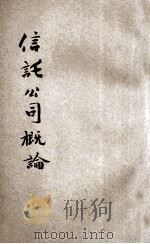 信託公司概論
mtoou.info